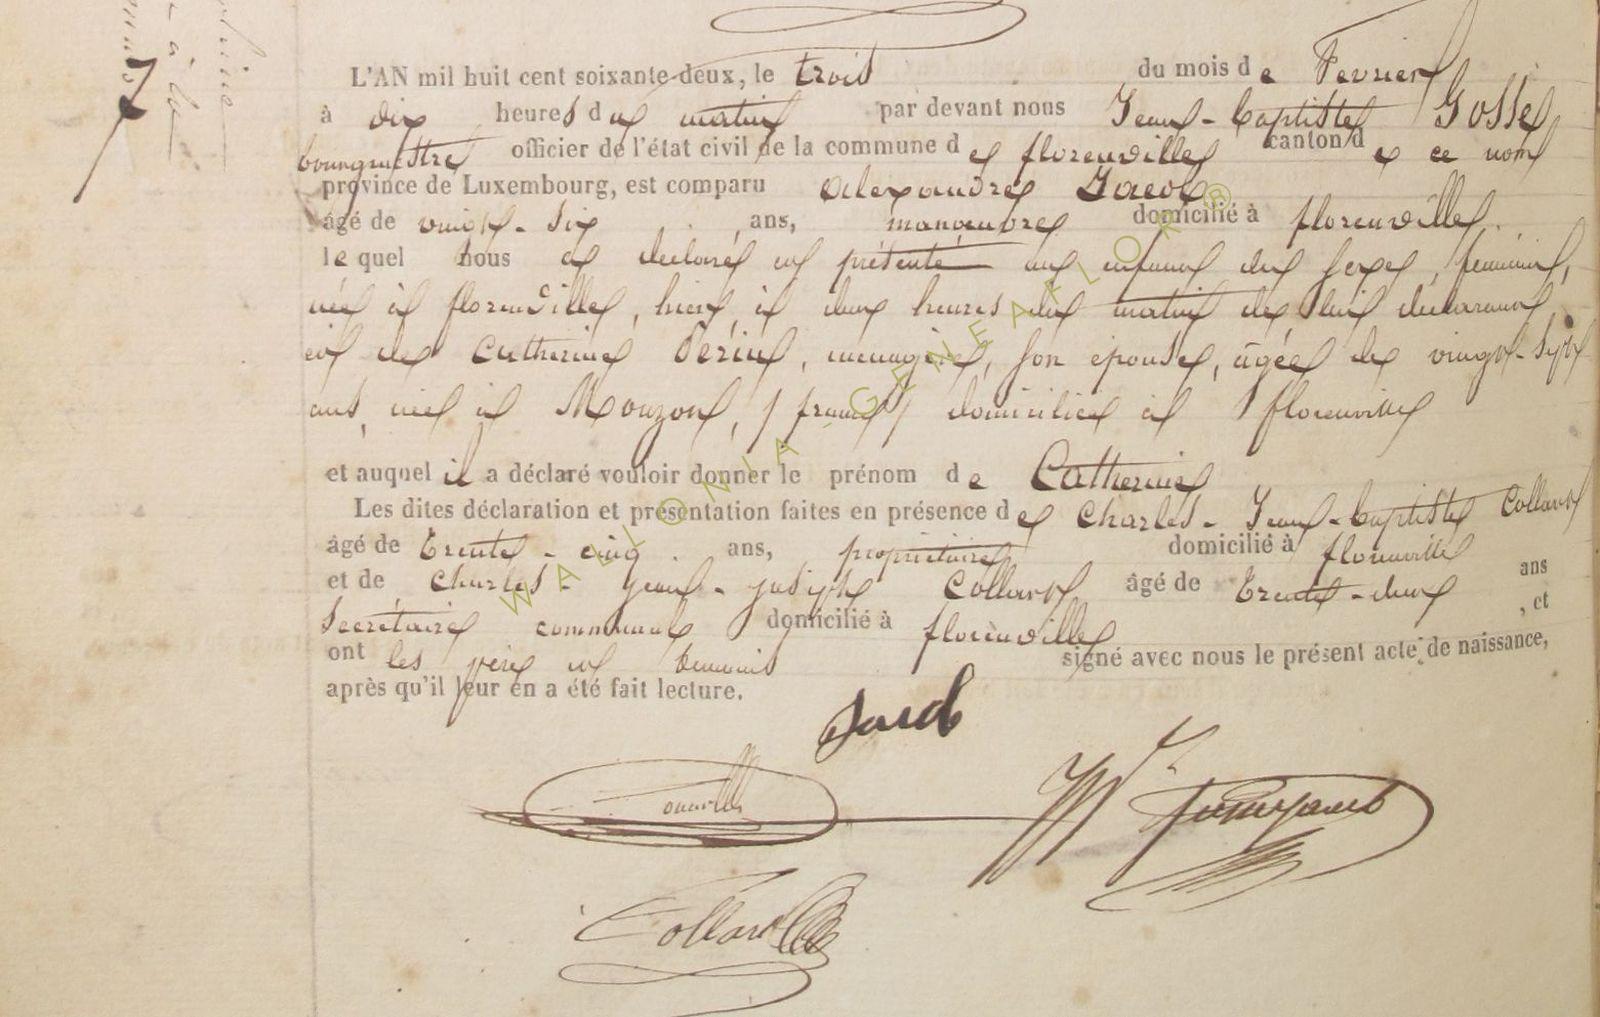 L'AN mil huit cent soixante-deux, le trois du mois de Fevrier
à dix heures du matin par devant nous Jean-Baptiste Gosse
bourgmestre officier de l'état civil de la commune de florenville canton de ce nom
province de Luxembourg, est comparu Alexandre Jacob
âgé de vingt-six ans, manœuvre domicilié à florenville
lequel nous a déclaré et présenté un enfant du sexe, féminin,
née à florenville, hier, à deux heures du matin de lui déclarant
et de Catherine Perin, menagère, son épouse, âgée de vingt-sept
ans, née à Mouzon, / france / domiciliée à florenville
et auquel il a déclaré vouloir donner le prénom de Catherine
Les dites déclaration et présentation faites en présence de Charles-Jean-baptiste Collard
âgé de Trente-cinq ans, propriétaire domicilié à florenville
et de Charles-jean-joseph Collard âgé de Trente-deux ans
Secrétaire communal domicilié à florenville, et
ont les père et temoins signé avec nous le présent acte de naissance,
après qu'il leur en a été fait lecture.
Jacob
Collard
7
WALLONIA - GENEAFLOR ®